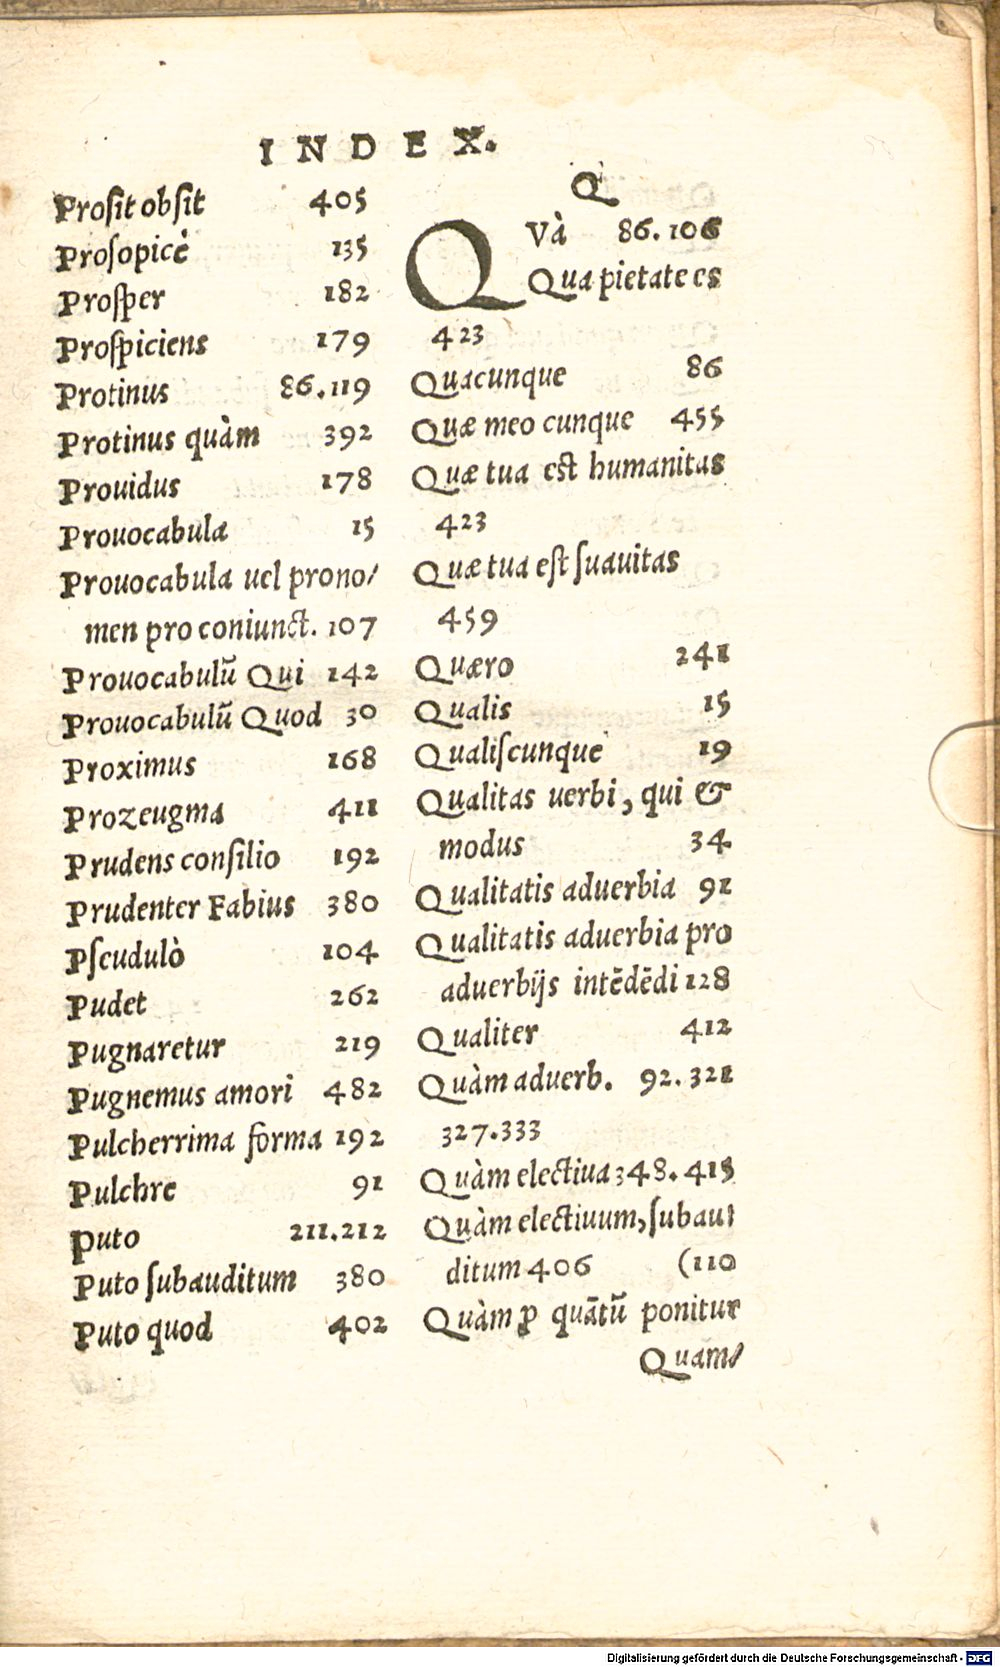 INDEX.
Prosit obsit 405
Prosopicè 135
Prosper 182
Prospiciens 179
Protinus 86.119
Protinus quàm 392
Prouidus 178
Prouocabula 15
Prouocabula uel prono/
men pro coniunct. 107
Prouocabulũ Qui 142
Prouocabulũ Quod 30
Proximus 168
Prozeugma 411
Prudens consilio 192
Prudenter Fabius 380
Pseudulò 104
Pudet 262
Pugnaretur 219
Pugnemus amori 482
Pulcherrima forma 192
Pulchre 91
Puto 211.212
Puto subauditum 380
Puto quod 402
Q
QVà 86.106
Qua pietate es
423
Quacunque 86
Quæ meo cunque 455
Quæ tua est humanitas
423
Quæ tua est suauitas
459
Quæro 241
Qualis 15
Qualiscunque 19
Qualitas uerbi, qui &
modus 34
Qualitatis aduerbia 91
Qualitatis aduerbia pro
aduerbijs intẽdẽdi 128
Qualiter 412
Quàm aduerb. 92.321
327.333
Quàm electiua 348.415
Quàm electiuum, subau
ditum 406 (110
Quàm ꝓ quãtũ ponitur
Quam/
Digitalisierung gefördert durch die Deutsche Forschungsgemeinschaft - DFG